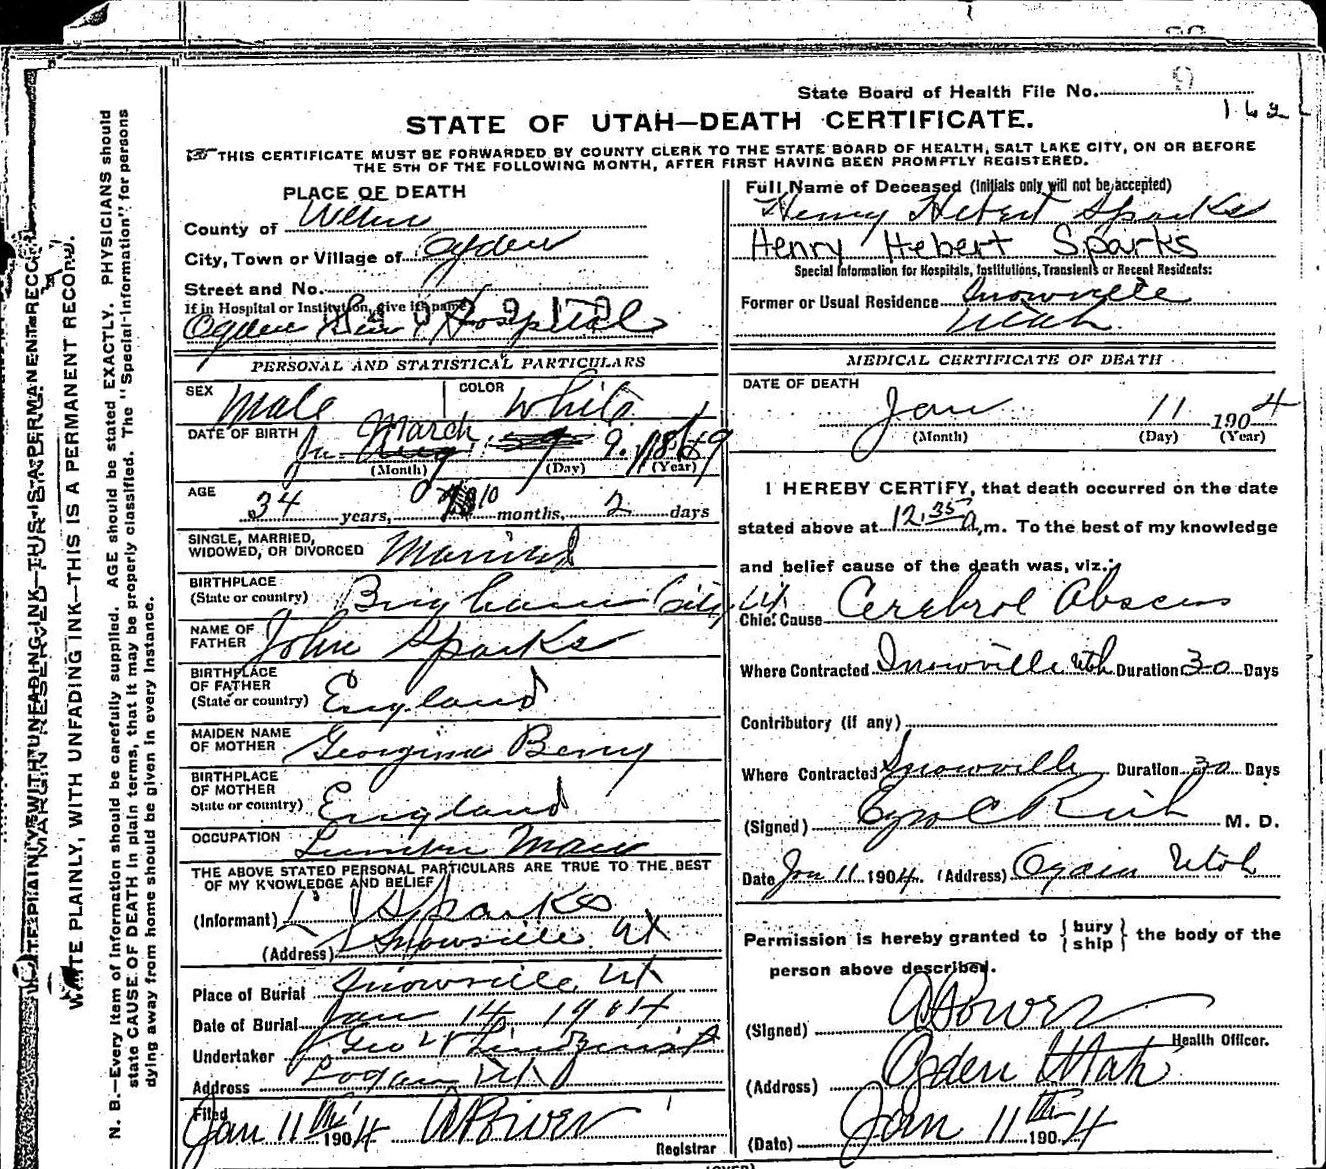 State Board of Health File No. 9
162
STATE OF UTAH—DEATH CERTIFICATE.
THIS CERTIFICATE MUST BE FORWARDED BY COUNTY CLERK TO THE STATE BOARD OF HEALTH, SALT LAKE CITY, ON OR BEFORE
THE 5TH OF THE FOLLOWING MONTH, AFTER FIRST HAVING BEEN PROMPTLY REGISTERED.
MARGIN RESERVED
WRITE PLAINLY WITH UNFADING INK—THIS IS A PERMANENT RECORD.
WRITE PLAINLY, WITH UNFADING INK—THIS IS A PERMANENT RECORD.
N. B.—Every item of information should be carefully supplied. AGE should be stated EXACTLY. PHYSICIANS should
state CAUSE OF DEATH in plain terms, that it may be properly classified. The "Special Information" for persons
dying away from home should be given in every instance.
PLACE OF DEATH
County of Weber
City, Town or Village of Ogden
Street and No.
If in Hospital or Institution, give its name
Ogden Hospital
PERSONAL AND STATISTICAL PARTICULARS
SEX Male COLOR White
DATE OF BIRTH March 9 1869
(Month) (Day) (Year)
AGE 34 years, 10 months, 2 days
SINGLE, MARRIED,
WIDOWED, OR DIVORCED Married
BIRTHPLACE
(State or country) Brigham City Ut
NAME OF
FATHER John Sparks
BIRTHPLACE
OF FATHER
(State or country) England
MAIDEN NAME
OF MOTHER Georgina Berry
BIRTHPLACE
OF MOTHER
State or country) England
OCCUPATION Lumber Man
THE ABOVE STATED PERSONAL PARTICULARS ARE TRUE TO THE BEST
OF MY KNOWLEDGE AND BELIEF
(Informant) L J Sparks
(Address) Snowville Ut
Place of Burial Snowville, Ut
Date of Burial Jan 14 1904
Undertaker Geo W Lindquist
Address Logan Ut
Filed
Jan 11th 1904 Registrar
Full Name of Deceased (Initials only will not be accepted)
Henry Hebert Sparks
Henry Hebert Sparks
Special Information for Hospitals, Institutions, Transients or Recent Residents:
Former or Usual Residence Snowville
Utah
MEDICAL CERTIFICATE OF DEATH
DATE OF DEATH
Jan 11 1904
(Month) (Day) (Year)
I HEREBY CERTIFY, that death occurred on the date
stated above at 12.35 a.m. To the best of my knowledge
and belief cause of the death was, viz.:
Chief Cause Cerebrol Abscess
Where Contracted Snowville Utah Duration 30 Days
Contributory (if any)
Where Contracted Snowville Duration 30 Days
(Signed) Ezra C Rich M. D.
Date Jan 11 1904. (Address) Ogden Utah
Permission is hereby granted to { bury
ship } the body of the
person above described.
(Signed)
Health Officer.
(Address) Ogden Utah
(Date) Jan 11th 1904
(OVER)